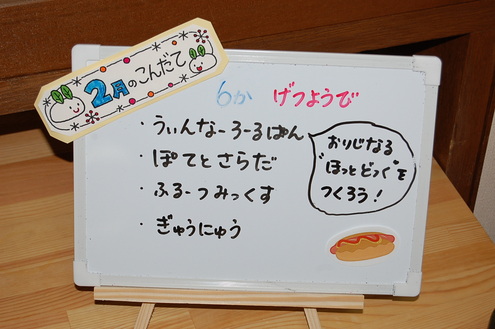 2月のこんだて
6か げつようび
・うぃんなーろーるぱん
・ぽてとさらだ
・ふるーつみっくす
・ぎゅうにゅう
おりじなる
"ほっとどっぐ"を
つくろう！